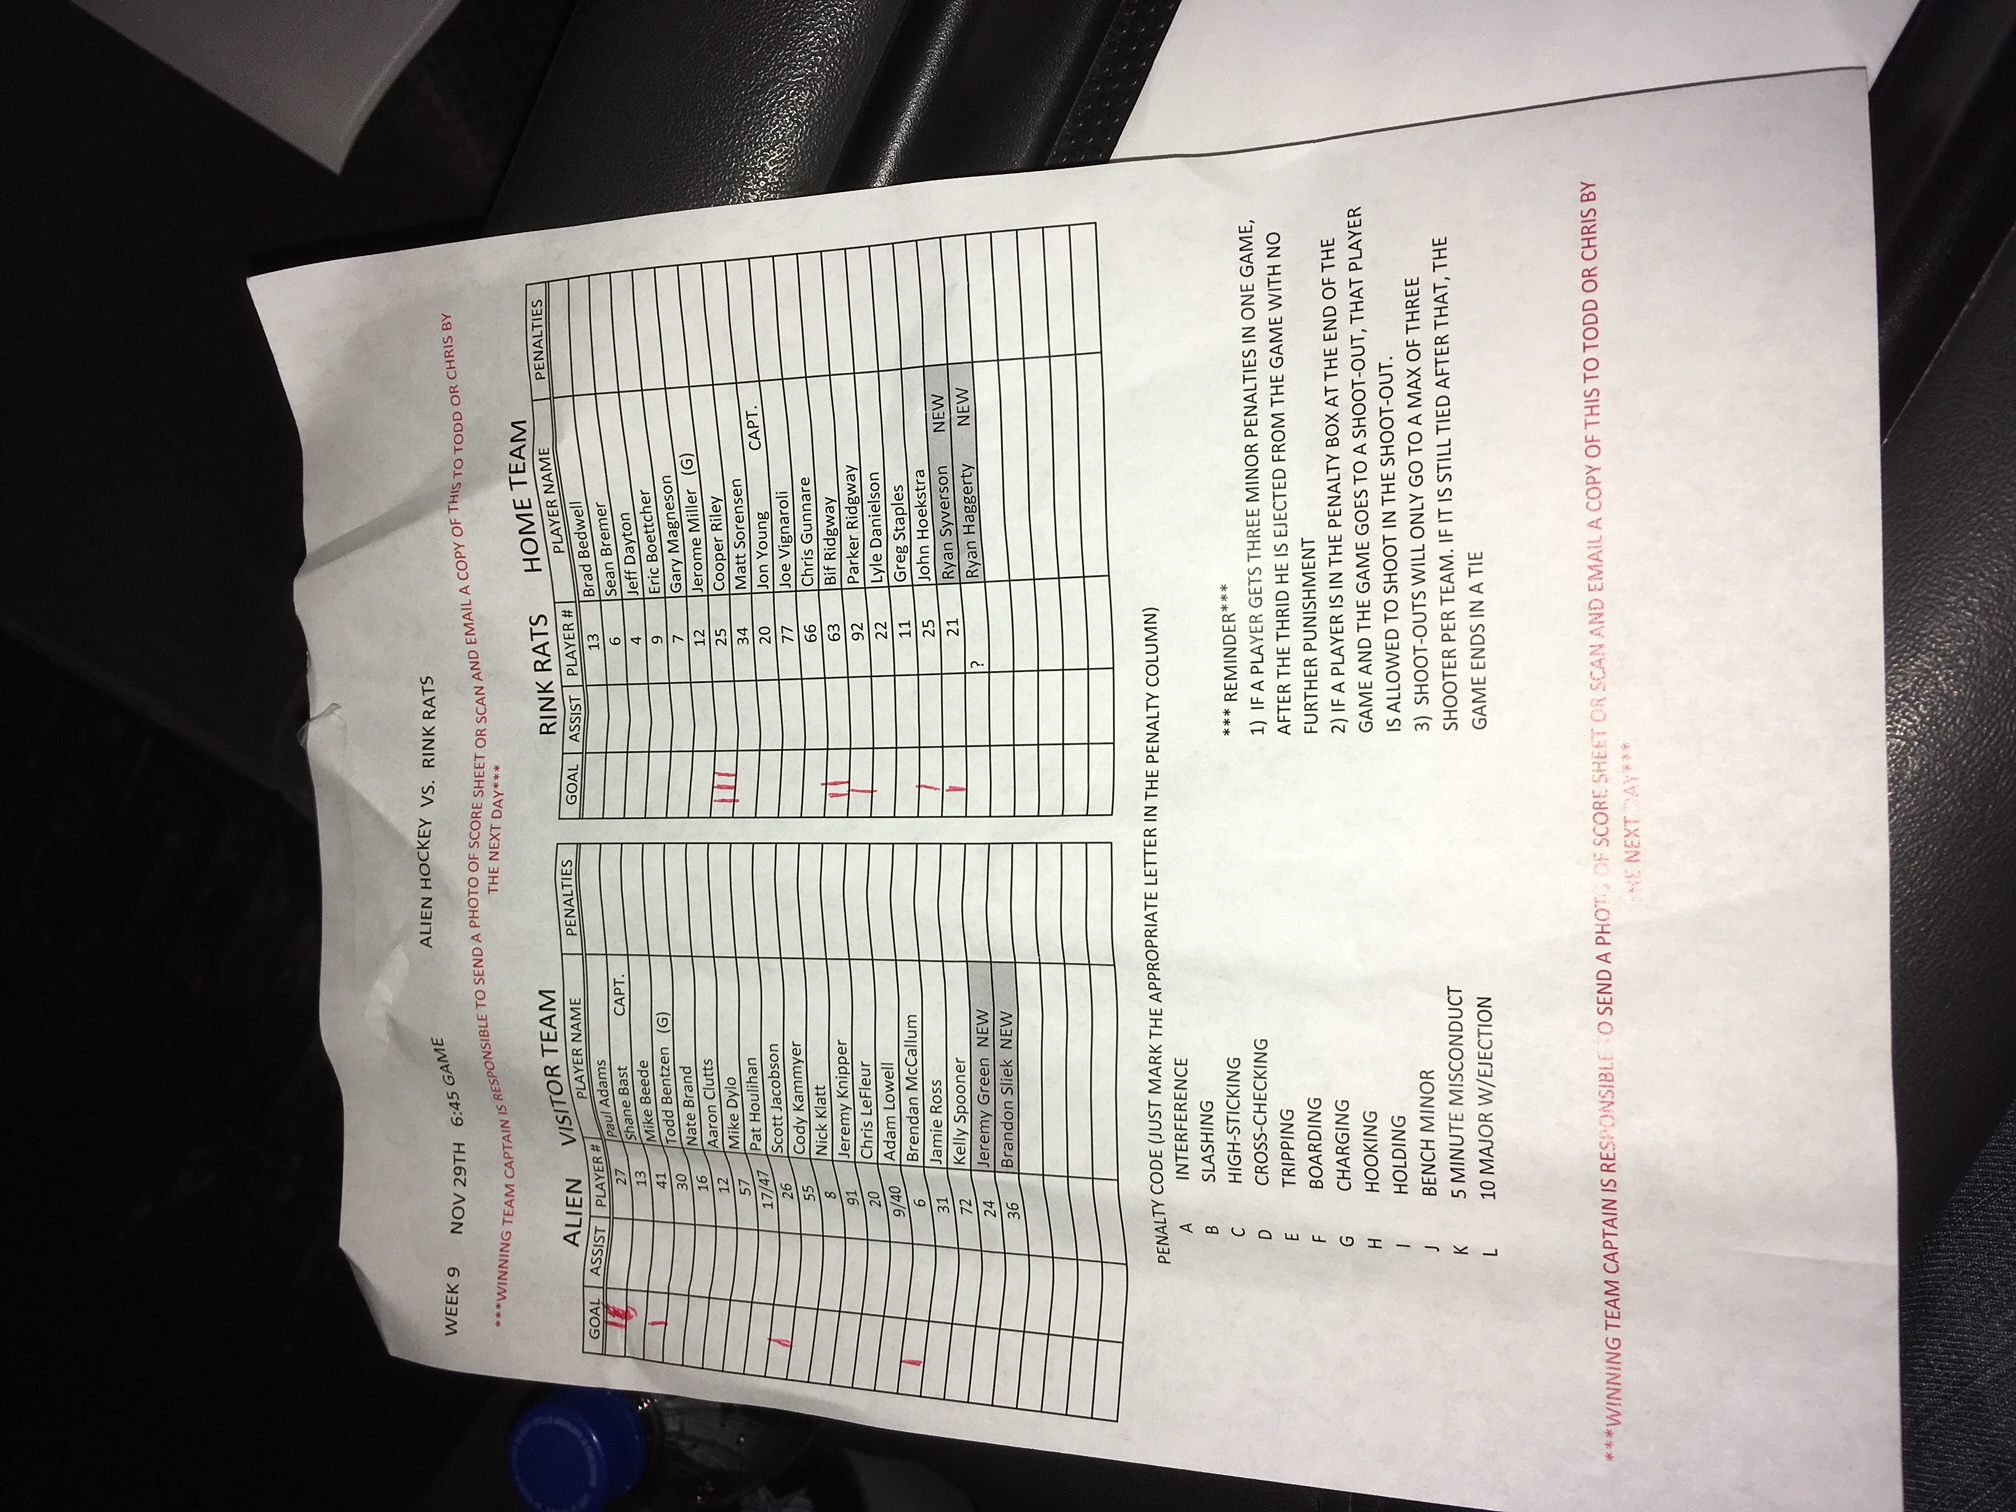 ALIEN HOCKEY VS. RINK RATS
WEEK 9 NOV 29TH 6:45 GAME
***WINNING TEAM CAPTAIN IS RESPONSIBLE TO SEND A PHOTO OF SCORE SHEET OR SCAN AND EMAIL A COPY OF THIS TO TODD OR CHRIS BY
THE NEXT DAY***
ALIEN VISITOR TEAM
GOAL ASSIST PLAYER # PLAYER NAME PENALTIES
27 Paul Adams
13 Shane Bast CAPT.
41 Mike Beede
30 Todd Bentzen (G)
16 Nate Brand
12 Aaron Clutts
57 Mike Dylo
17/47 Pat Houlihan
26 Scott Jacobson
55 Cody Kammyer
8 Nick Klatt
91 Jeremy Knipper
20 Chris LeFleur
9/40 Adam Lowell
6 Brendan McCallum
31 Jamie Ross
72 Kelly Spooner
24 Jeremy Green NEW
36 Brandon Sliek NEW
RINK RATS HOME TEAM
GOAL ASSIST PLAYER # PLAYER NAME PENALTIES
13 Brad Bedwell
6 Sean Bremer
4 Jeff Dayton
9 Eric Boettcher
7 Gary Magneson
12 Jerome Miller (G)
25 Cooper Riley
34 Matt Sorensen
20 Jon Young CAPT.
77 Joe Vignaroli
66 Chris Gunnare
63 Bif Ridgway
92 Parker Ridgway
22 Lyle Danielson
11 Greg Staples
25 John Hoekstra
21 Ryan Syverson NEW
? Ryan Haggerty NEW
PENALTY CODE (JUST MARK THE APPROPRIATE LETTER IN THE PENALTY COLUMN)
A INTERFERENCE
B SLASHING
C HIGH-STICKING
D CROSS-CHECKING
E TRIPPING
F BOARDING
G CHARGING
H HOOKING
I HOLDING
J BENCH MINOR
K 5 MINUTE MISCONDUCT
L 10 MAJOR W/EJECTION
*** REMINDER***
1) IF A PLAYER GETS THREE MINOR PENALTIES IN ONE GAME,
AFTER THE THRID HE IS EJECTED FROM THE GAME WITH NO
FURTHER PUNISHMENT
2) IF A PLAYER IS IN THE PENALTY BOX AT THE END OF THE
GAME AND THE GAME GOES TO A SHOOT-OUT, THAT PLAYER
IS ALLOWED TO SHOOT IN THE SHOOT-OUT.
3) SHOOT-OUTS WILL ONLY GO TO A MAX OF THREE
SHOOTER PER TEAM. IF IT IS STILL TIED AFTER THAT, THE
GAME ENDS IN A TIE
***WINNING TEAM CAPTAIN IS RESPONSIBLE TO SEND A PHOTO OF SCORE SHEET OR SCAN AND EMAIL A COPY OF THIS TO TODD OR CHRIS BY
THE NEXT DAY***